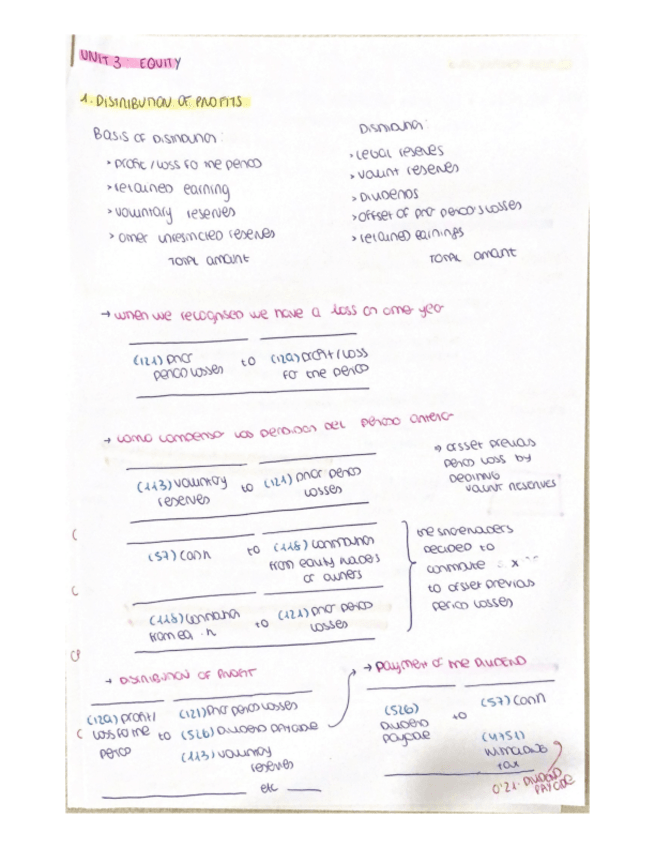 UNIT 3 EQUITY
1. DISTRIBUTION OF PROFITS
BASIS OF DISTRIBUTION:
> profit / loss fo the period
> retained earning
> voluntary reserves
> other unrestricted reserves
TOTAL amount
DISTRIBUTION:
> legal reserves
> volunt reserves
> Dividends
> offset of prior period's losses
> retained earnings
TOTAL amount
→ when we recognised we have a loss on one year
(121) prior period losses to (129) profit / loss for the period
→ como compenso las perdidas del periodo anterior
(113) voluntary reserves to (121) prior period losses
⇒ offset previous
period loss by
using
volunt reserves
(57) cash to (118) contribution from equity holders or owners
(118) contribution from eq. h to (121) prior period losses
the shareholders
decided to
contribute x
to offset previous
period losses
→ DISTRIBUTION OF PROFIT
(129) profit / loss fo the period to (121) Prior period losses
(526) Dividend payable
(113) voluntary reserves
etc
→ payment of the DIVIDEND
(526) dividend payable to (57) cash
(4751) withholding tax
0'21. DIVIDEND PAYABLE